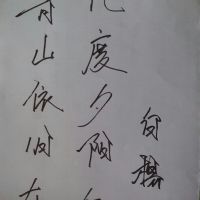 青山依旧在
几度夕阳